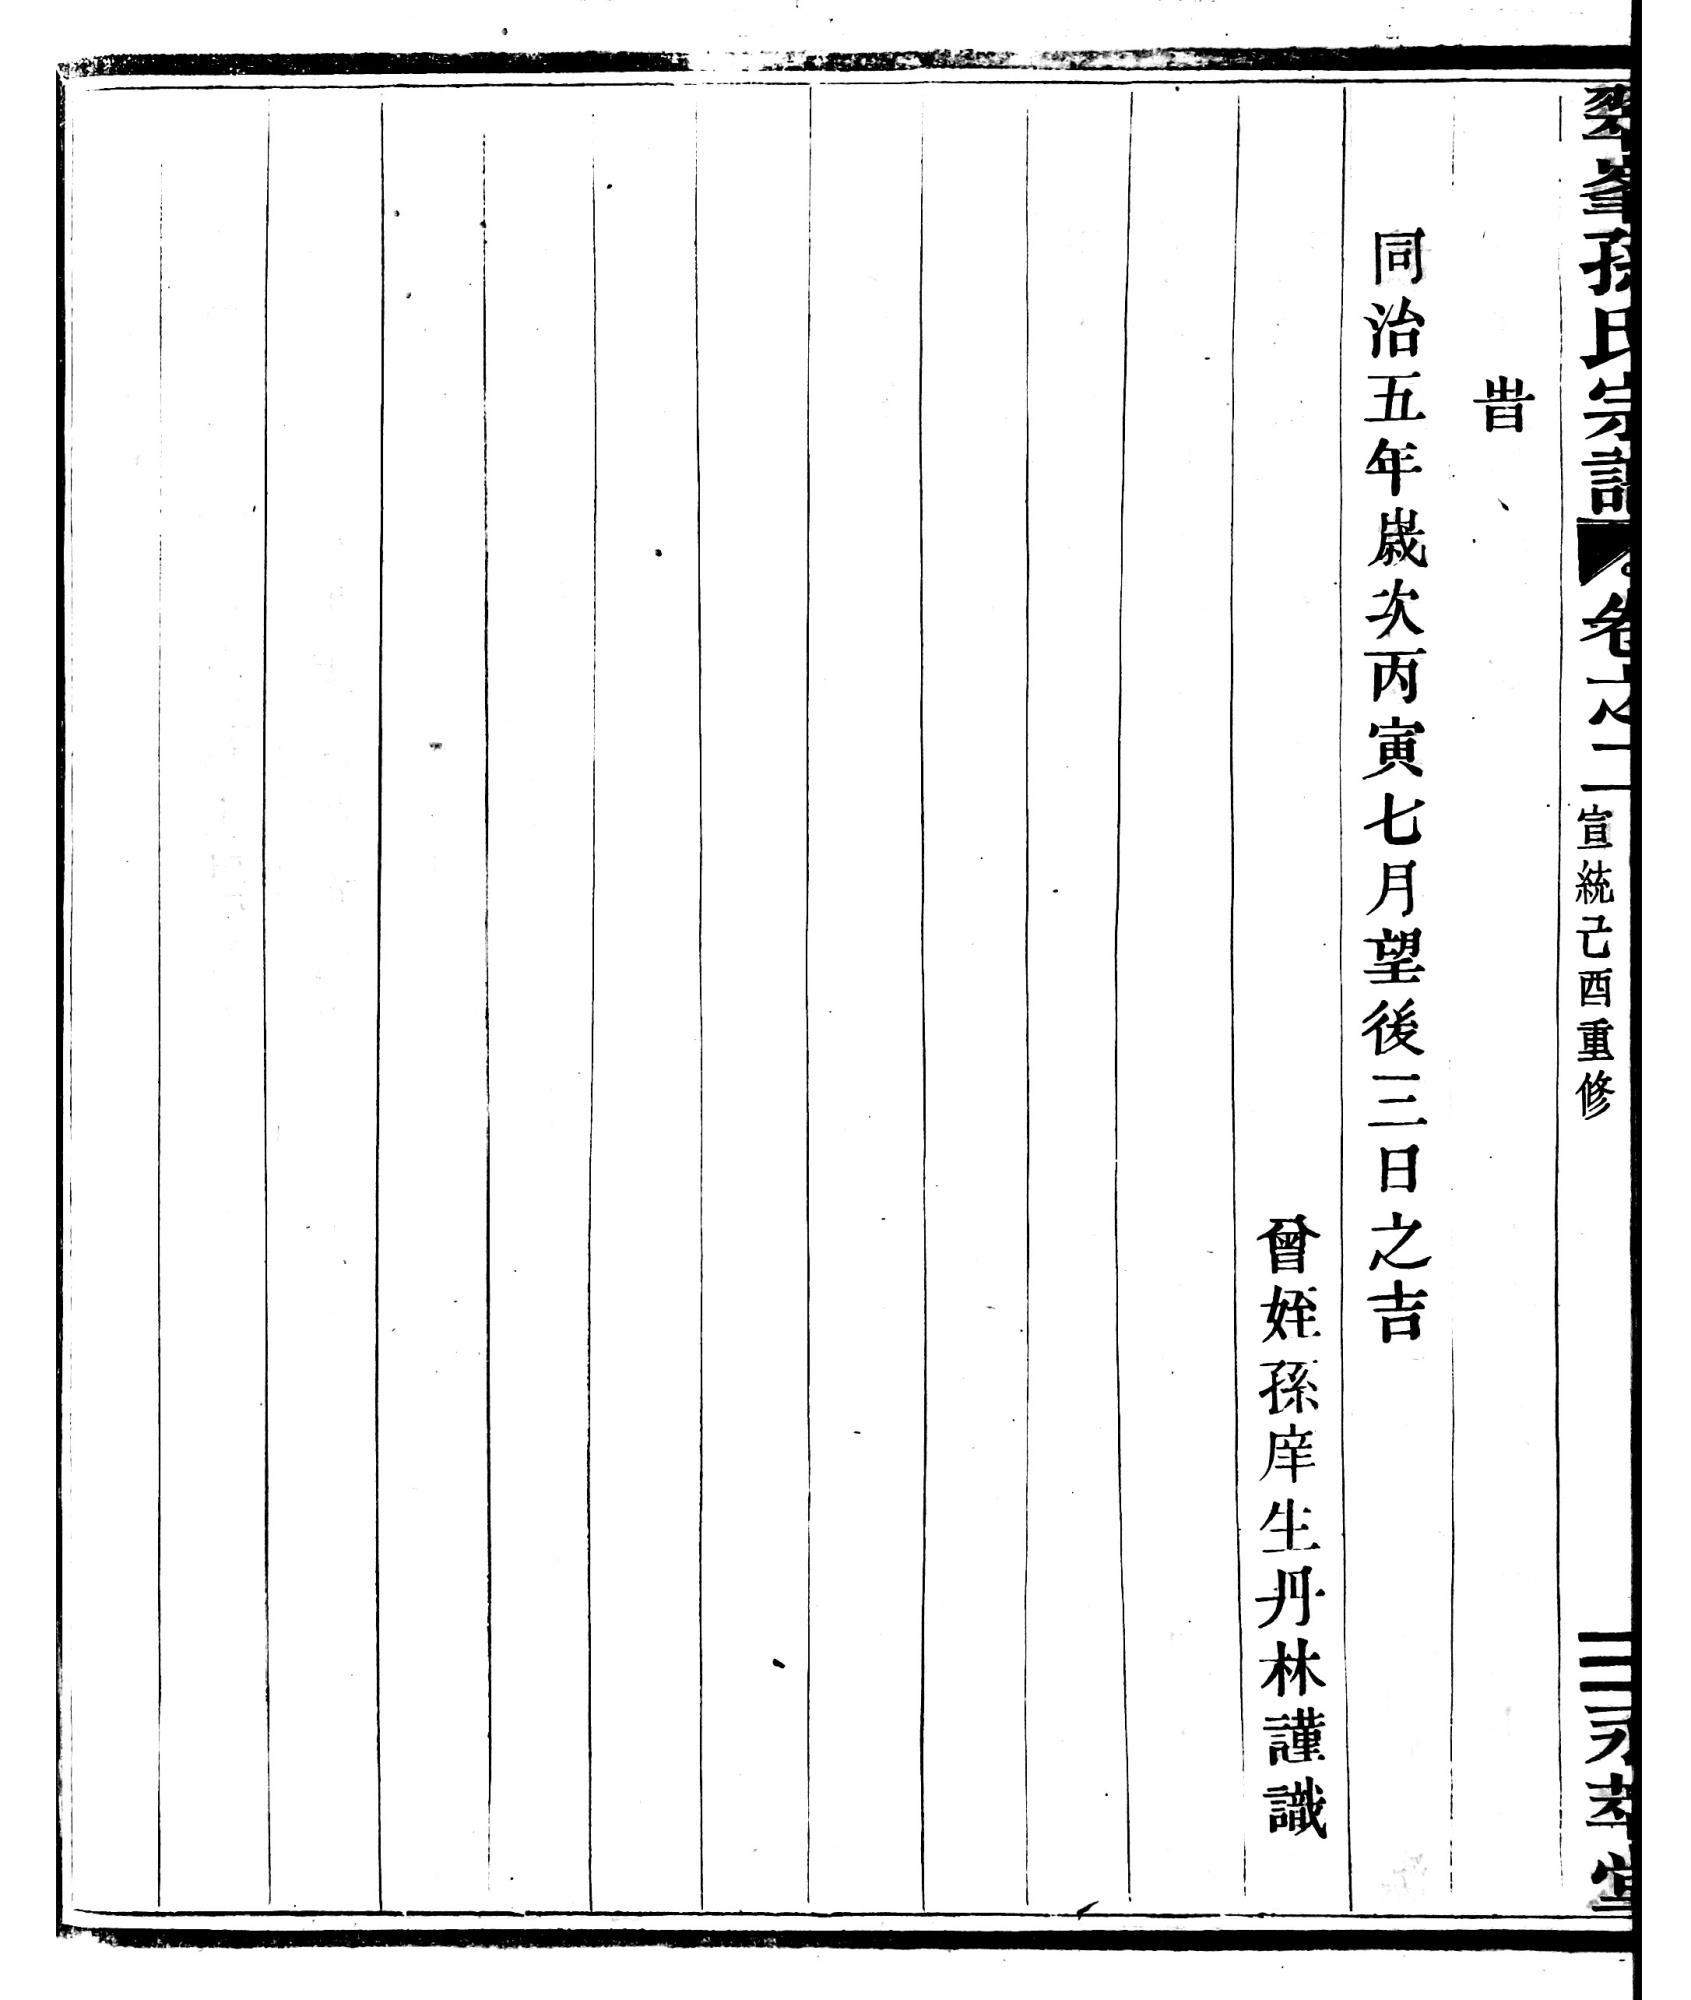 翠峯孫氏宗譜 卷之二 宣統己酉重修 三 永萃堂
旹
同治五年歲次丙寅七月望後三日之吉
曾姪孫庠生丹林謹識